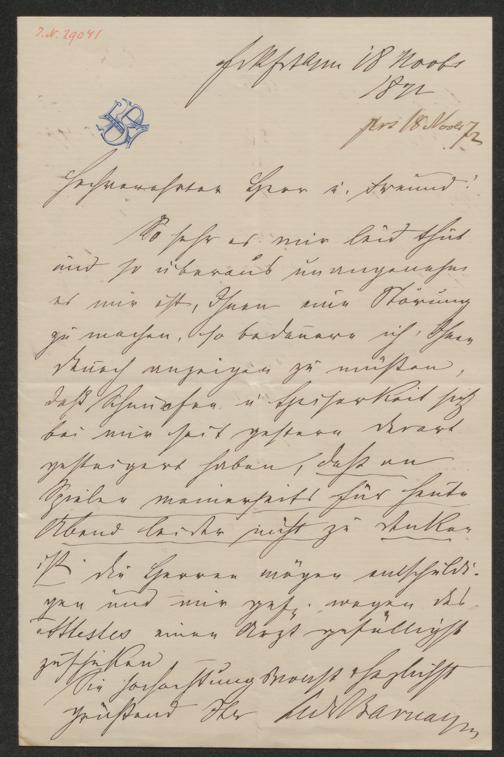 I.N. 29041
Frkfrt a/m 18 Novbr
1872
prs 18 Novbr 72
LB
Hochverehrter Herr u. Freund!
So sehr es mir leid thut
und so überaus unangenehm
es mir ist, Ihnen eine Störung
zu machen, so bedauere ich Ihnen
dennoch anzeigen zu müßen,
daß Schnupfen u Heiserkeit sich
bei mir seit gestern derart
gesteigert haben, daß an
Spielen meinerseits für heute
Abend leider nicht zu denken
ist. Die Herren mögen entschuldi-
gen und mir gef. wegen des
Attestes einen Arzt gefälligst
zuschicken
Sie hochachtungsvollst
grüßend Ihr Ludw Barnay